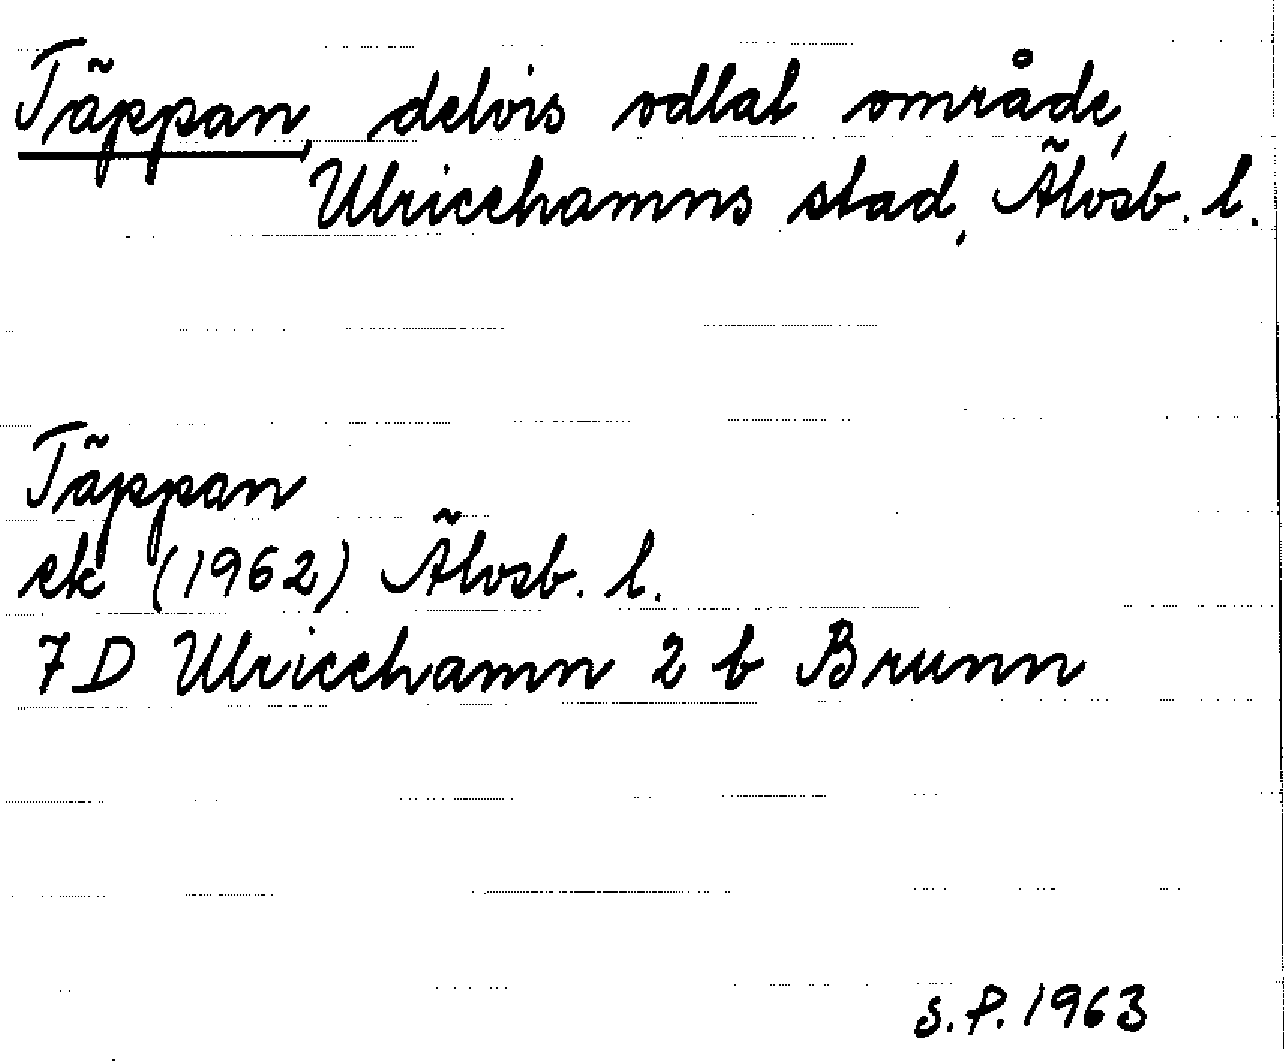 Täppan, delvis odlat område,
Ulricehamns stad, Älvsb. l.
Täppan
ek (1962) Älvsb. l.
7D Ulricehamn 2 b Brunn
S.P. 1963